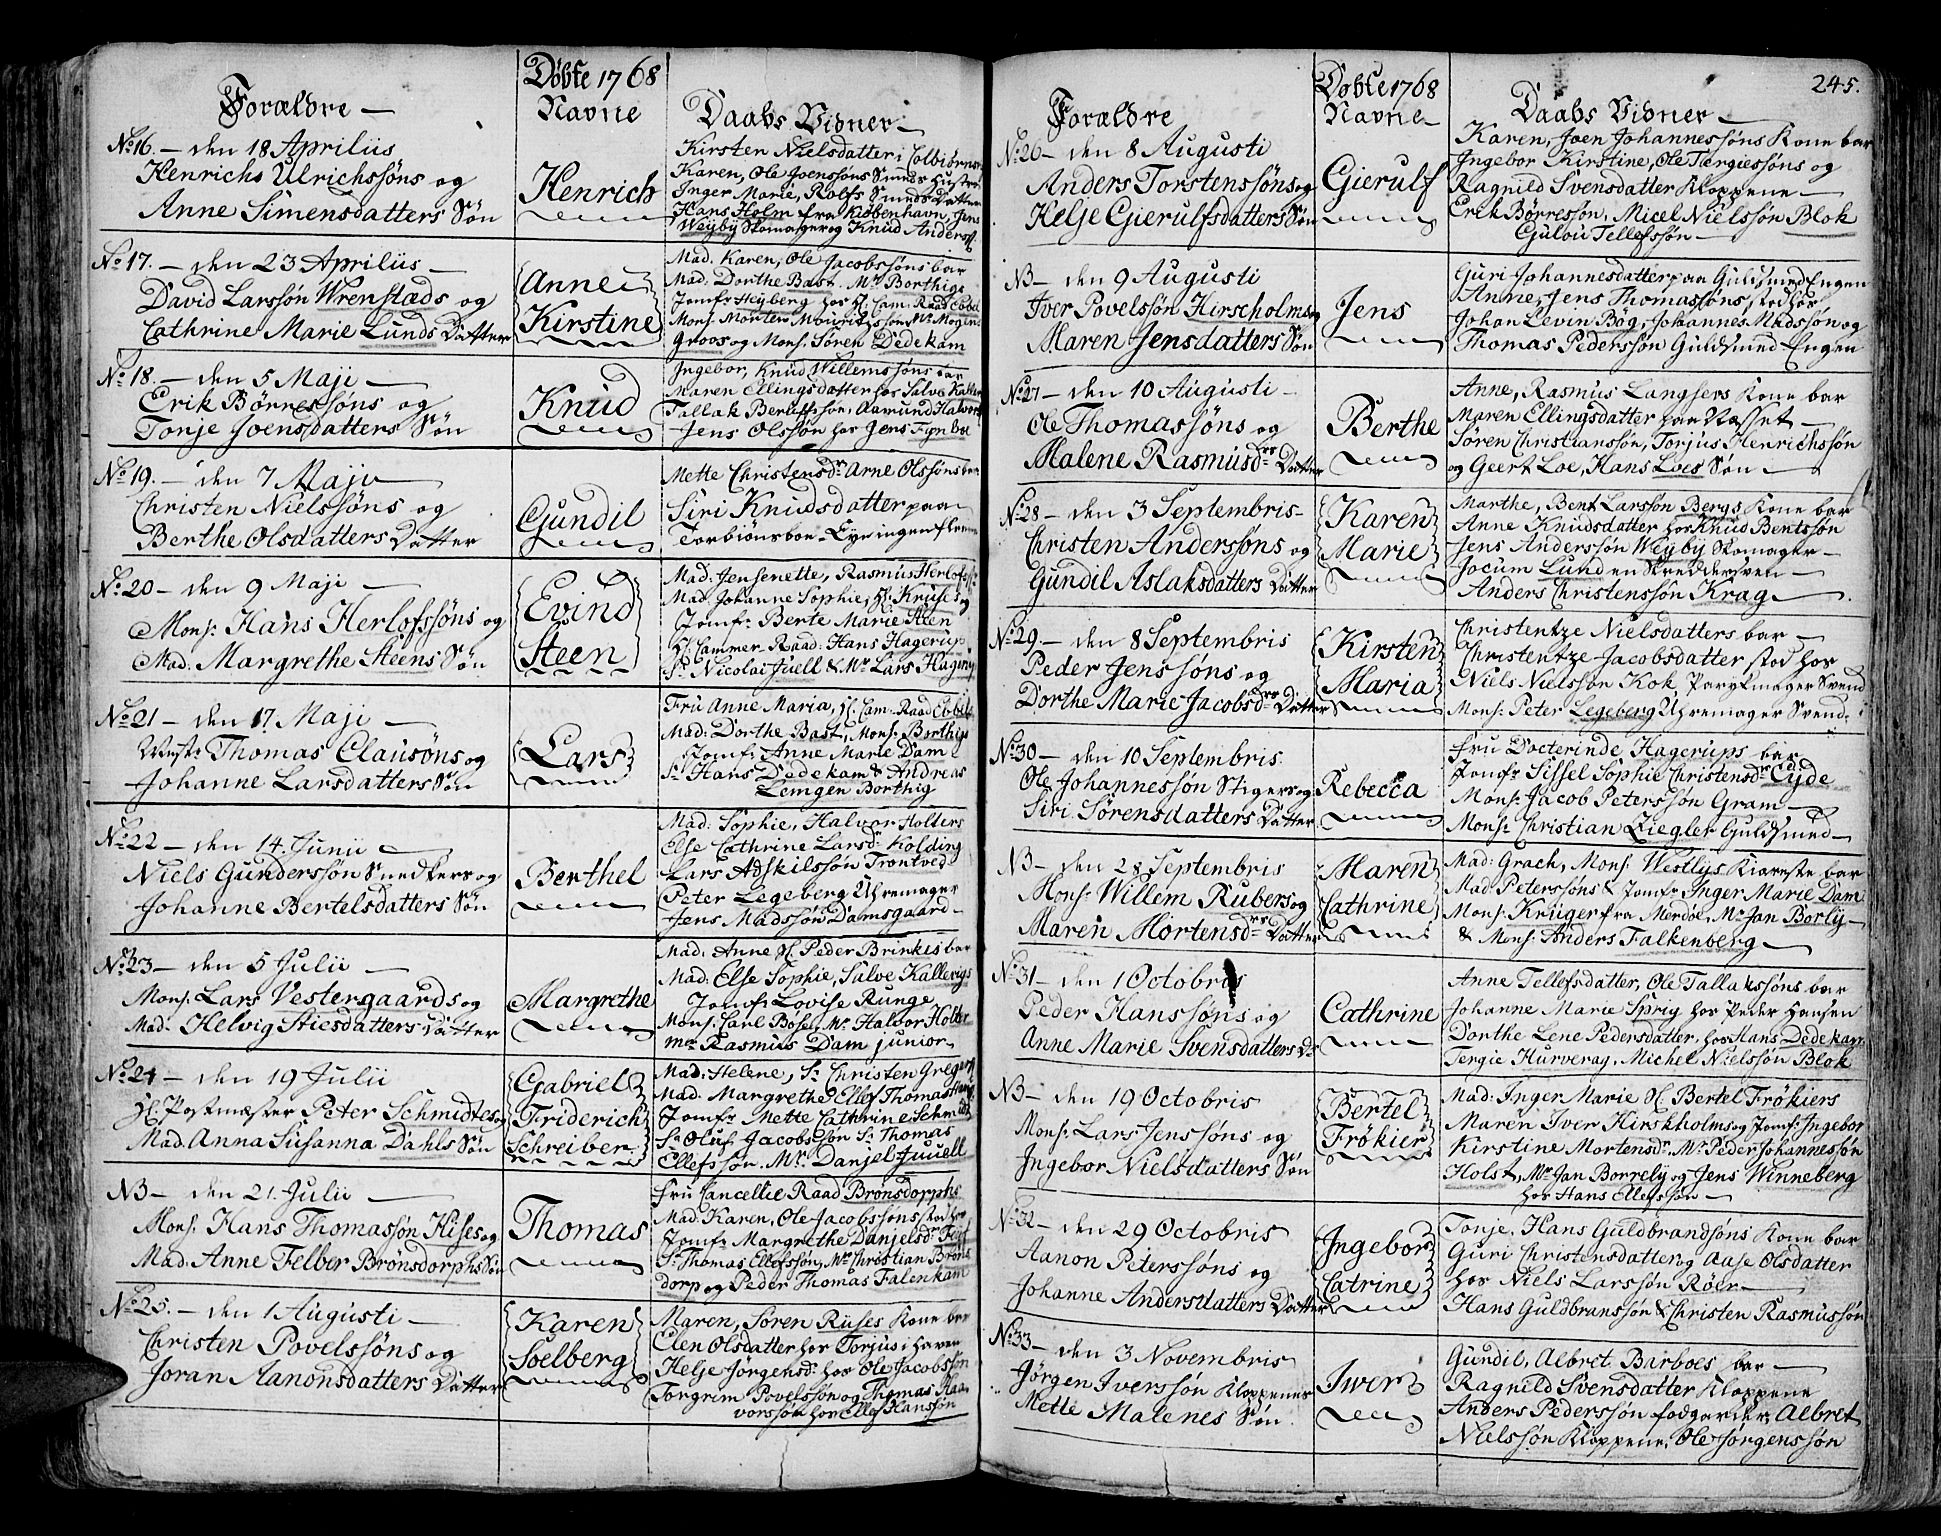 Døbte 1768
Forældre — Navne Daabs Vidner —
No 16. — den 18 Aprilis
Henrichs Ulrichssøns og
Anne Simensdatters Søn
Henrich
Kirsten Nielsdatter i Colbiørns
Karen, Ole Joenssøns Smeds Hustru
Inger Marie, Rolfs Smeds Datter
Hans Holm fra Kiøbenhavn, Jens
Weyby Skomager og Knud Anderss
No 17. — den 23 Aprilis —
David Larssøn Wrenstæds og
Cathrine Marie Lunds Datter
Anne
Kirstine
Mad. Karen, Ole Jacobssøns bar
Mad. Dorthe Bast. Mr Borthigs
Jomfr Heyberg hos H. Cam. Raad Ebbel
Mons. Morten Mouritssøn Mr Mogens
Groos og Mons. Søren Dedekam
No 18. — den 5 Maji —
Erik Børressøns og
Tonje Joensdatters Søn
Knud
Ingebor, Knud Willemssøns bar
Maren Ellingsdatter hos Salve Kaller
Tallak Berlefssøn, Aamund Halvors
Jens Olssøn hos Jens Fynbo
No 19. — den 7 Maji
Christen Nielssøns og
Berthe Olsdatters Datter
Gundil
Mette Christensdr Arne Olssøns bar
Siri Knudsdatter paa
Torbiønsboe
No 20 — den 9 Maji —
Mons. Hans Herlofssøns og
Mad. Margrethe Steens Søn
Evind
Steen
Mad: Jensenette, Rasmus Herlofs
Mad: Johanne Sophie, H. Kruses og
Jomfr Berte Marie Steen
H. Cammer Raad: Hans Hagerup
Sr Nicolai Juell & Mr Lars Hagerup
No 21 — den 17 Maji —
Thomas Clausøns og
Johanne Larsdatters Søn
Lars
Fru Anne Maria, H. Cam: Raad Ebbels
Mad: Dorthe Bast, Mons. Borthigs
Jomfr Anne Marie Dam
Sr Hans Dedekam & Andreas
Lemgen Borthig
No 22 — den 14 Junii —
Niels Gunderssøn Snedkers og
Johanne Bertelsdatters Søn
Berthel
Mad: Sophie, Halvor Holters
Else Cathrine Larsdr Kolding
Lars Adskilssøn Trontved
Peter Legeberg Uhremager
Jens Madssøn Damsgaard —
No 23 — den 5 Julii —
Mons. Lars Vestergaards og
Mad. Helvig Stiesdatters Datter
Margrethe
Mad: Anne H. Peder Brinkes bar
Mad: Else Sophie, Salve Kallevigs
Jomfr: Lovise Runge
Mons. Carl Bøse, Mr Halvor Holter
Mr Rasmus Dam junior
No 24 — den 19 Julii
H. Postmester Peter Schmidtes og
Mad. Anna Susanna Dahls Søn
Gabriel
Friderich
Schreiber
Mad: Helene, Sr Christen Gregers
Mad: Margrethe Ellef Thomas
Jomfr Mette Cathrine Schmidt
Sr Oluf Jacobssøn Sr Thomas
Ellefssøn. Mr. Danjel Juuell
NB — den 21. Julii —
Mons. Hans Thomassøn Hises og
Mad. Anne Felber Brønsdorphs Søn
Thomas
Fru Cancellie Raad Brønsdorphs
Mad. Karen, Ole Jacobssøns stod hos
Jomfr Margrethe Danjelsdr
Sr Thomas Ellefssøn, Mr Christian Brøns
dorp og Peder Thomas Falenkam
No 25. — den 1 Augusti —
Christen Povelssøns og
Joran Aanonsdatters Datter
Karen
Soelberg
Maren, Søren Ruses Kone bar
Elen Olsdatter hos Torjus i Haven
Helje Jørgensdr hos Ole Jacobssøn
Torgrim Povelssøn og Thomas Haa
vorssøn hos Ellef Hanssøn
245.
Døbte 1768
Forældre Navne — Daabs Vidner —
No 26 — den 8 Augusti
Anders Torstenssøns og
Helje Gierulfsdatters Søn
Gierulf
Karen, Joen Johannessøns Kone bar
Ingebor Kirstine, Ole Tergiessøns og
Ragnild Svensdatter Kloppene —
Erik Børressøn, Micel Nielssøn Blok
Gulou Tellefssøn —
NB — den 9 Augusti
Iver Povelssøn Hirscholms og
Maren Jensdatters Søn
Jens
Guri Johannesdatter paa Guldsmed Engen
Anne, Jens Thomassøns, stod hos
Johan Levin Bøg, Johannes Madssøn og
Thomas Pederssøn Guldsmed-Engen
No 27 — den 10 Augusti —
Ole Thomassøns og
Malene Rasmusdrs Datter
Berthe
Anne, Rasmus Langfers Kone bar
Maren Ellingsdatter paa Næsset —
Søren Christianssøn, Torjus Henrichssøn
og Geert Loe, Hans Loes Søn —
No 28 — den 3 Septembris —
Christen Anderssøns og
Gundil Aslaksdatters Datter
Karen
Marie
Marthe, Bent Larssøn Bergs Kone bar
Anne Knudsdatter hos Knud Bentssøn
Jens Anderssøn Weyby Skomager —
Jocum Lund en Skreddersven —
Anders Christenssøn Krag —
No 29. — den 8 Septembris
Peder Jenssøns og
Dorthe Marie Jacobsdrs Datter
Kirsten
Maria
Christentze Nielsdatters bar —
Christentze Jacobsdatter stod hos
Niels Nielssøn Kok, Parykmager Svend
Mons. Peter Legeberg Uhremager Svend.
No 30 — den 10 Septembris
Ole Johannessøn Stigers og
Siri Sørensdatters Datter
Rebecca
Fru Docterinde Hagerups bar
Jomfr Sissel Sophie Christensdr Eyde
Mons. Jacob Peterssøn Gram —
Mons. Christian Ziegler Guldsmed —
NB — den 28 Septembris
Mons. Willem Rubers og
Maren Mortensdrs Datter
Maren
Cathrine
Mad: Grach, Mons. Westlys Kiæreste bar
Mad Peterssøns & Jomfr Inger Marie Dam
Mons. Krüger fra Merdøe, Mr Jan Borly —
& Mons. Anders Falkenberg —
No 31 — den 1 Octobris
Peder Hanssøns og
Anne Marie Svensdatters Dr
Cathrine
Anne Tellefsdatter, Ole Tallakssøns bar
Johanne Marie Sprig hos Peder Hansen
Dorthe Lene Pedersdatter, hos Hans Dedekam
Tergie Hurveray, Michel Nielssøn Blok
NB — den 19 Octobris
Mons. Lars Jenssøns og
Ingebor Nielsdatters Søn
Bertel
Frøkier
Mad: Inger Marie H. Bertel Frøkiers
Maren Iver Hirskholms og Jomfr Ingebor
Kirstine Mortensdr. Mr Peder Johannessøn
Holst, Mr Jan Borrely og Jens Winneberg
hos Hans Ellefssøn —
No 32 — den 29 Octobris
Aanon Piterssøns og
Johanne Andersdatters Datter
Ingebor
Catrine
Tonje, Hans Guldbrandsøns Kone bar
Guri Christensdatter og Aase Olsdatter
hos Niels Larssøn Røer —
Hans Guldbranssøn & Christen Rasmussøn
No 33 — den 3 Novembris
Jørgen Iverssøn Kloppenes
Mette Malenes Søn.
Iver
Gundil, Albret Barboes bar —
Ragnild Svensdatter Kloppene
Anders Pederssøn fodgarder, Albret
Nielssøn Kloppene, Ole Jørgenssøn